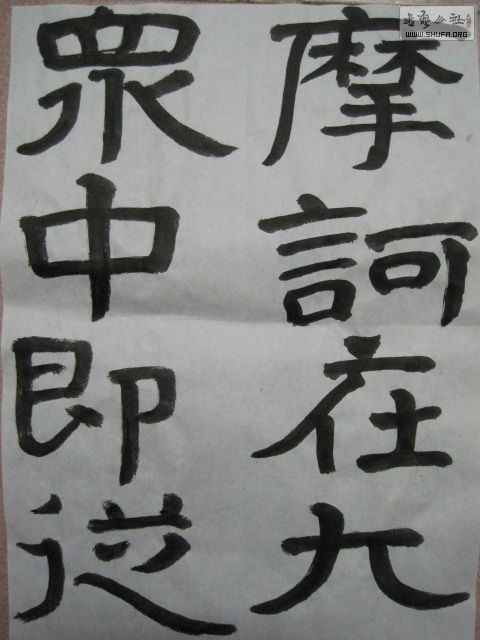 摩訶在大
眾中即従
书艺公社
WWW.SHUFA.ORG